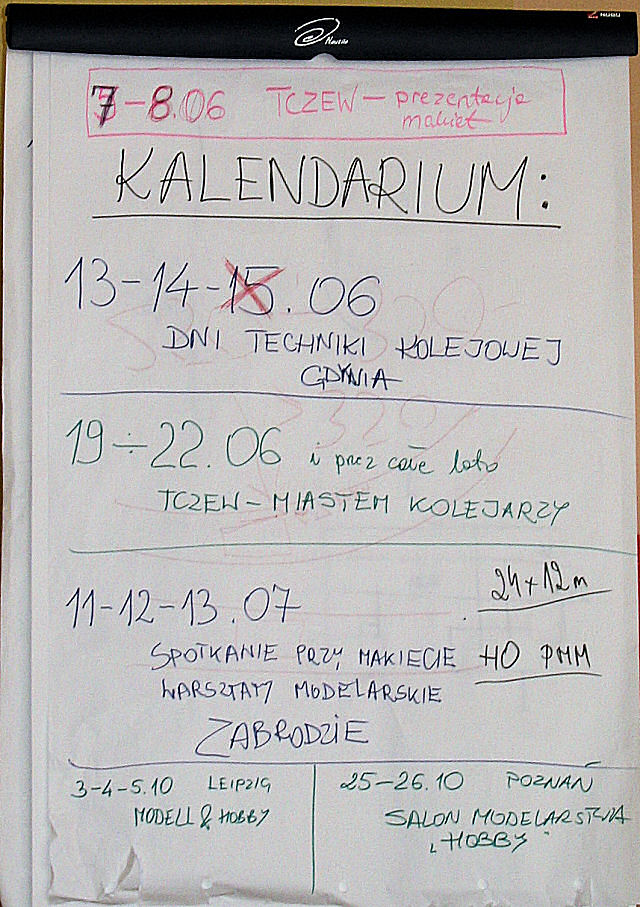 7-8.06 TCZEW - prezentacja
makiet
KALENDARIUM:
13-14-15.06
DNI TECHNIKI KOLEJOWEJ
GDYNIA
19÷22.06 i przez całe lato
TCZEW - MIASTEM KOLEJARZY
24+12m
11-12-13.07
SPOTKANIE PRZY MAKIECIE HO PMM
WARSZTATY MODELARSKIE
ZABRODZIE
3-4-5.10 LEIPZIG
MODELL & HOBBY
25-26.10 POZNAŃ
SALON MODELARSTWA
"HOBBY"